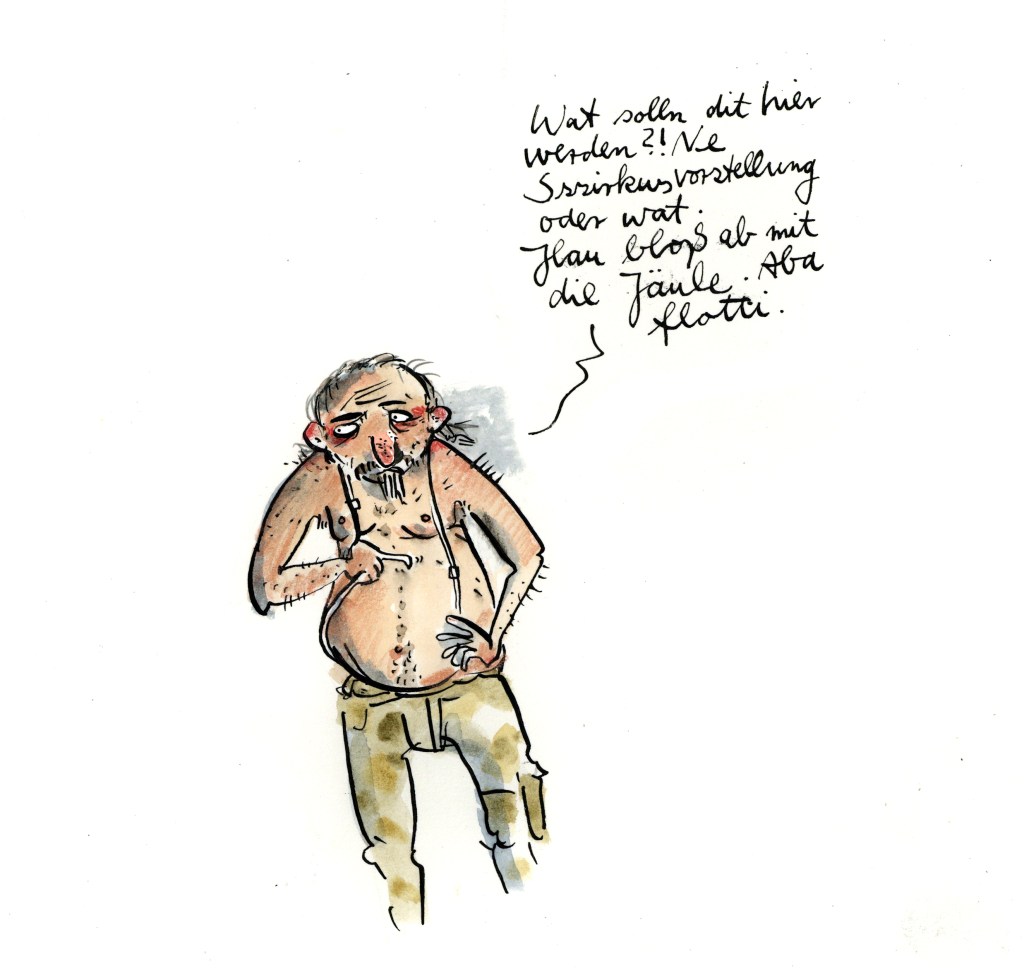 Wat solln dit hier
werden?! Ne
Sszirkusvorstellung
oder wat.
Hau bloß ab mit
die Jäule. Aba
flotti.